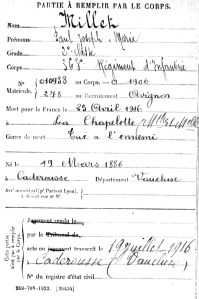 PARTIE À REMPLIR PAR LE CORPS.
Nom Millet
Prénoms Paul Joseph Marie
Grade 2e Classe
Corps Régiment d'Infanterie
No Matricule. 010933 au Corps. — Cl. 1906
278 au Recrutement Avignon
Mort pour la France le 23 Avril 1916
à La Chapelotte
Genre de mort Tué à l'ennemi
Né le 19 Mars 1886
à Caderousse Département Vaucluse
Arr' municipal (pr Paris et Lyon),
à défaut rue et No.
Cette partie n'est pas à remplir par le Corps.
Jugement rendu le
par le Tribunal de
acte ou jugement transcrit le 19 juillet 1916
à Caderousse (Vaucluse)
No du registre d'état civil
[26434]